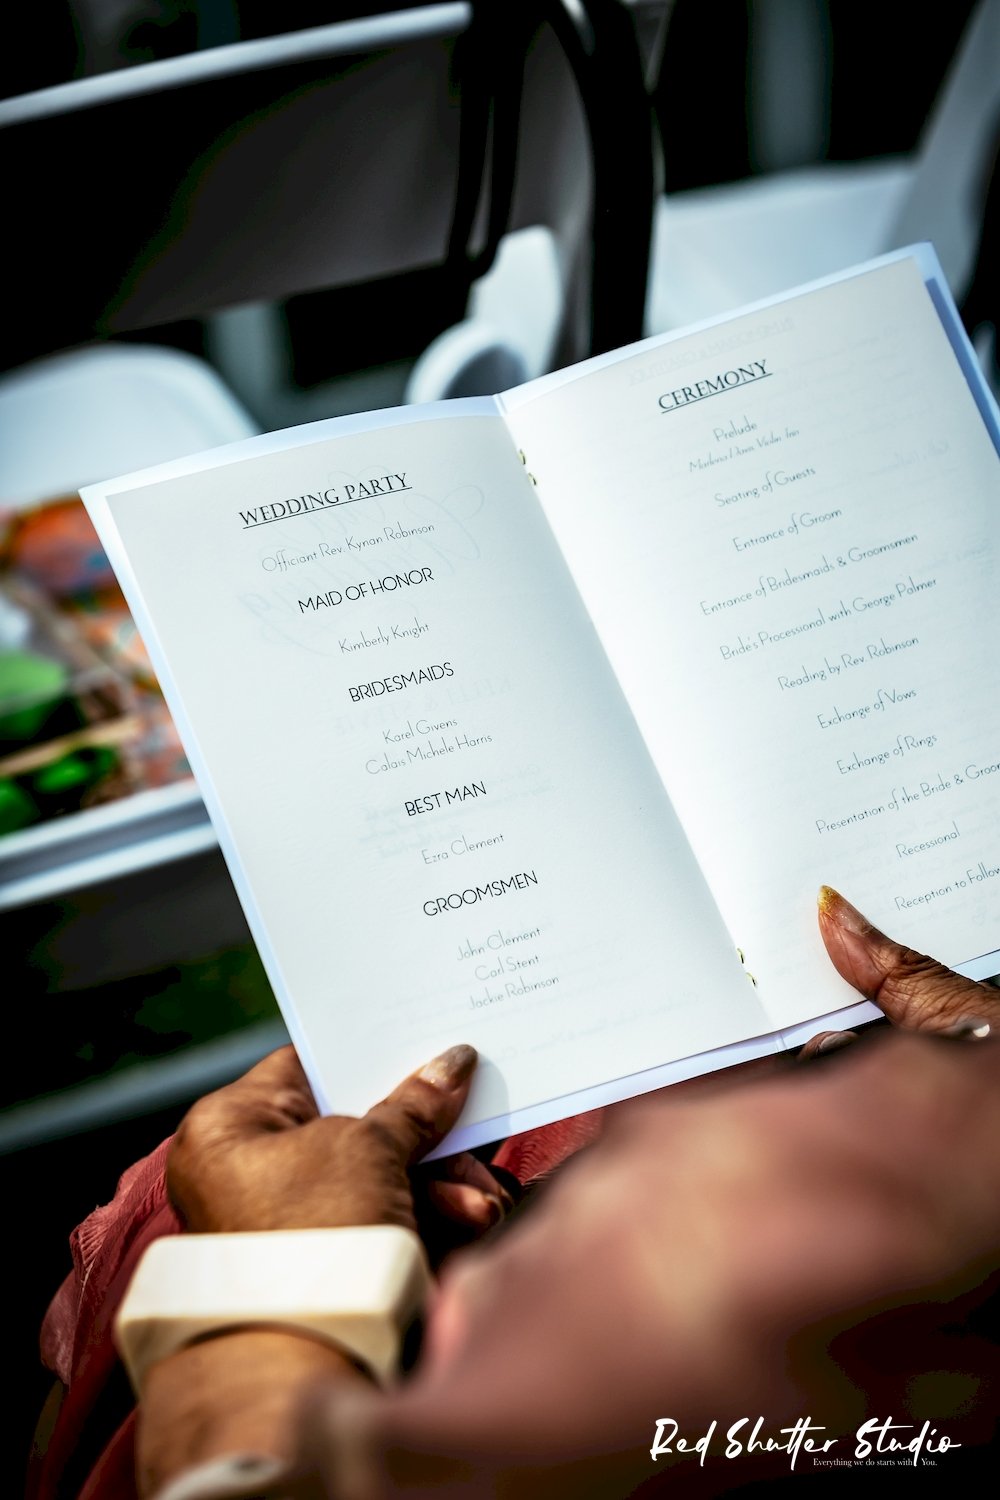 WEDDING PARTY
Officiant Rev. Kynan Robinson
MAID OF HONOR
Kimberly Knight
BRIDESMAIDS
Karel Givens
Calais Michele Harris
BEST MAN
Ezra Clement
GROOMSMEN
John Clement
Carl Stent
Jackie Robinson
CEREMONY
Prelude
Marlena Davis Violin Trio
Seating of Guests
Entrance of Groom
Entrance of Bridesmaids & Groomsmen
Bride's Processional with George Palmer
Reading by Rev. Robinson
Exchange of Vows
Exchange of Rings
Presentation of the Bride & Groo
Recessional
Reception to Follow
Red Shutter Studio
Everything we do starts with You.